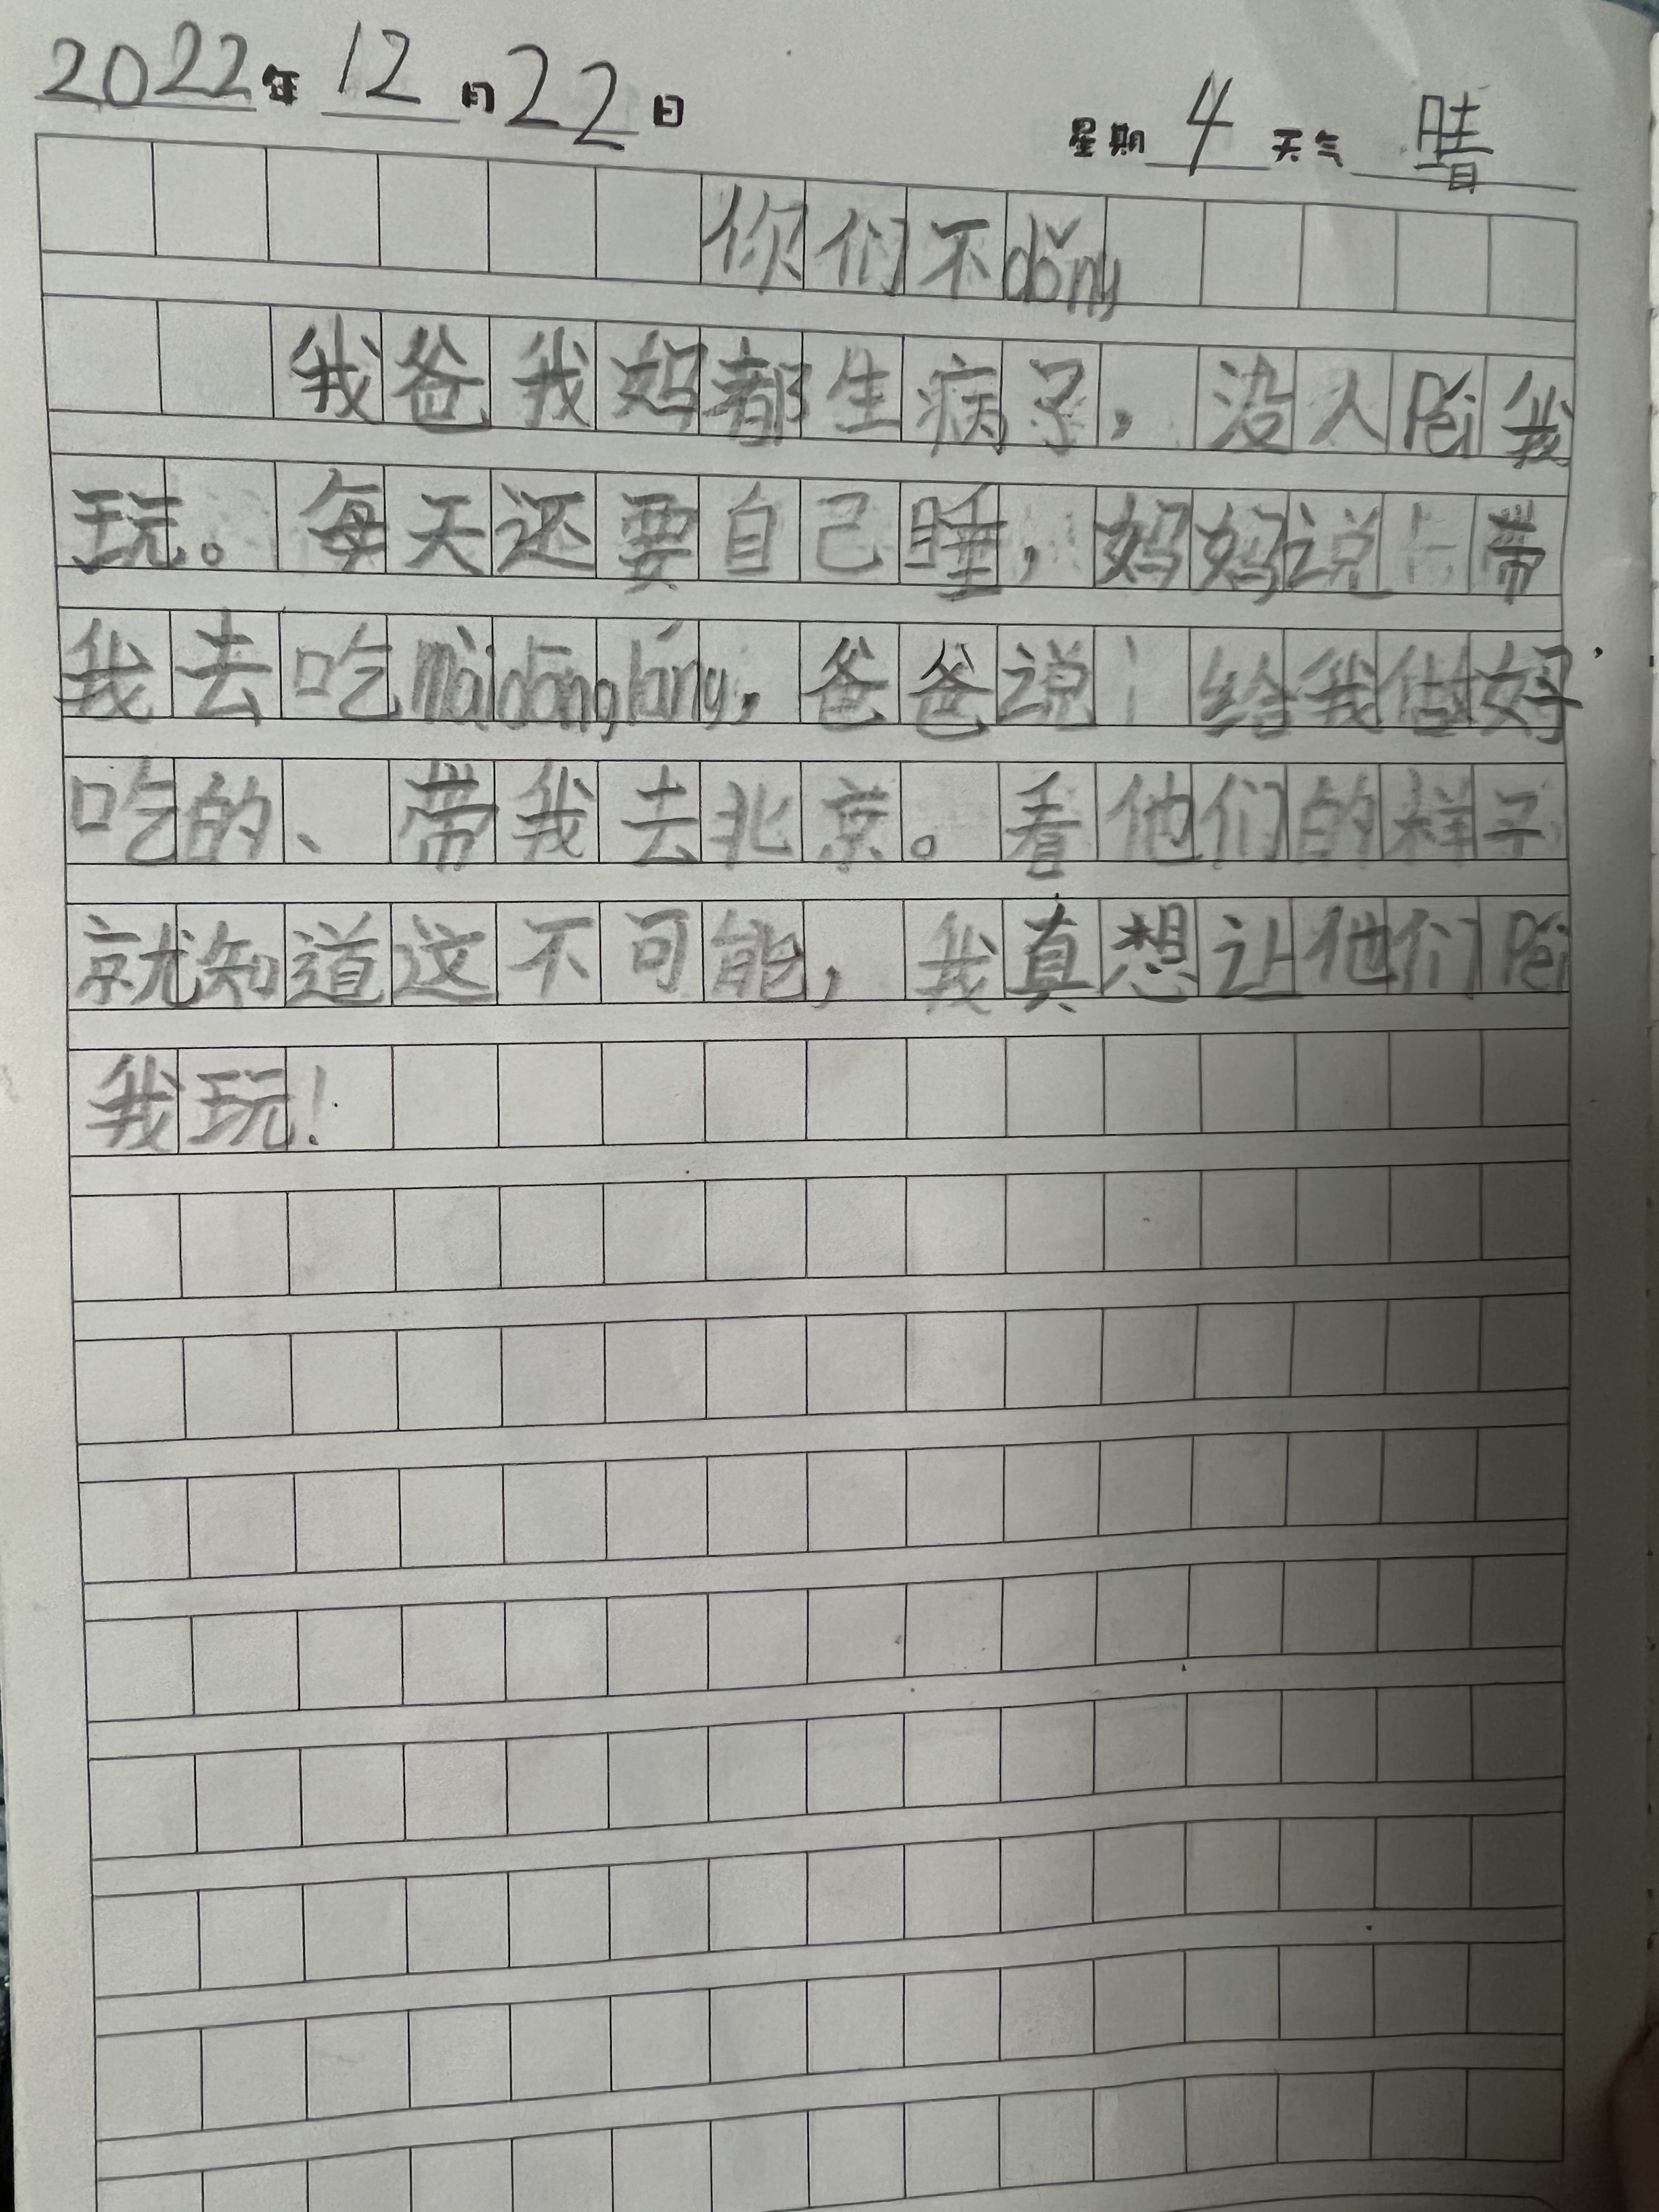 2022年 12 月 22 日 星期 4 天气 晴
你们不dǒng
我爸我妈都生病了，没人Péi我
玩。每天还要自己睡，妈妈说带
我去吃màidāngláng，爸爸说给我做好
吃的、带我去北京。看他们的样子
就知道这不可能，我真想让他们Péi
我玩！